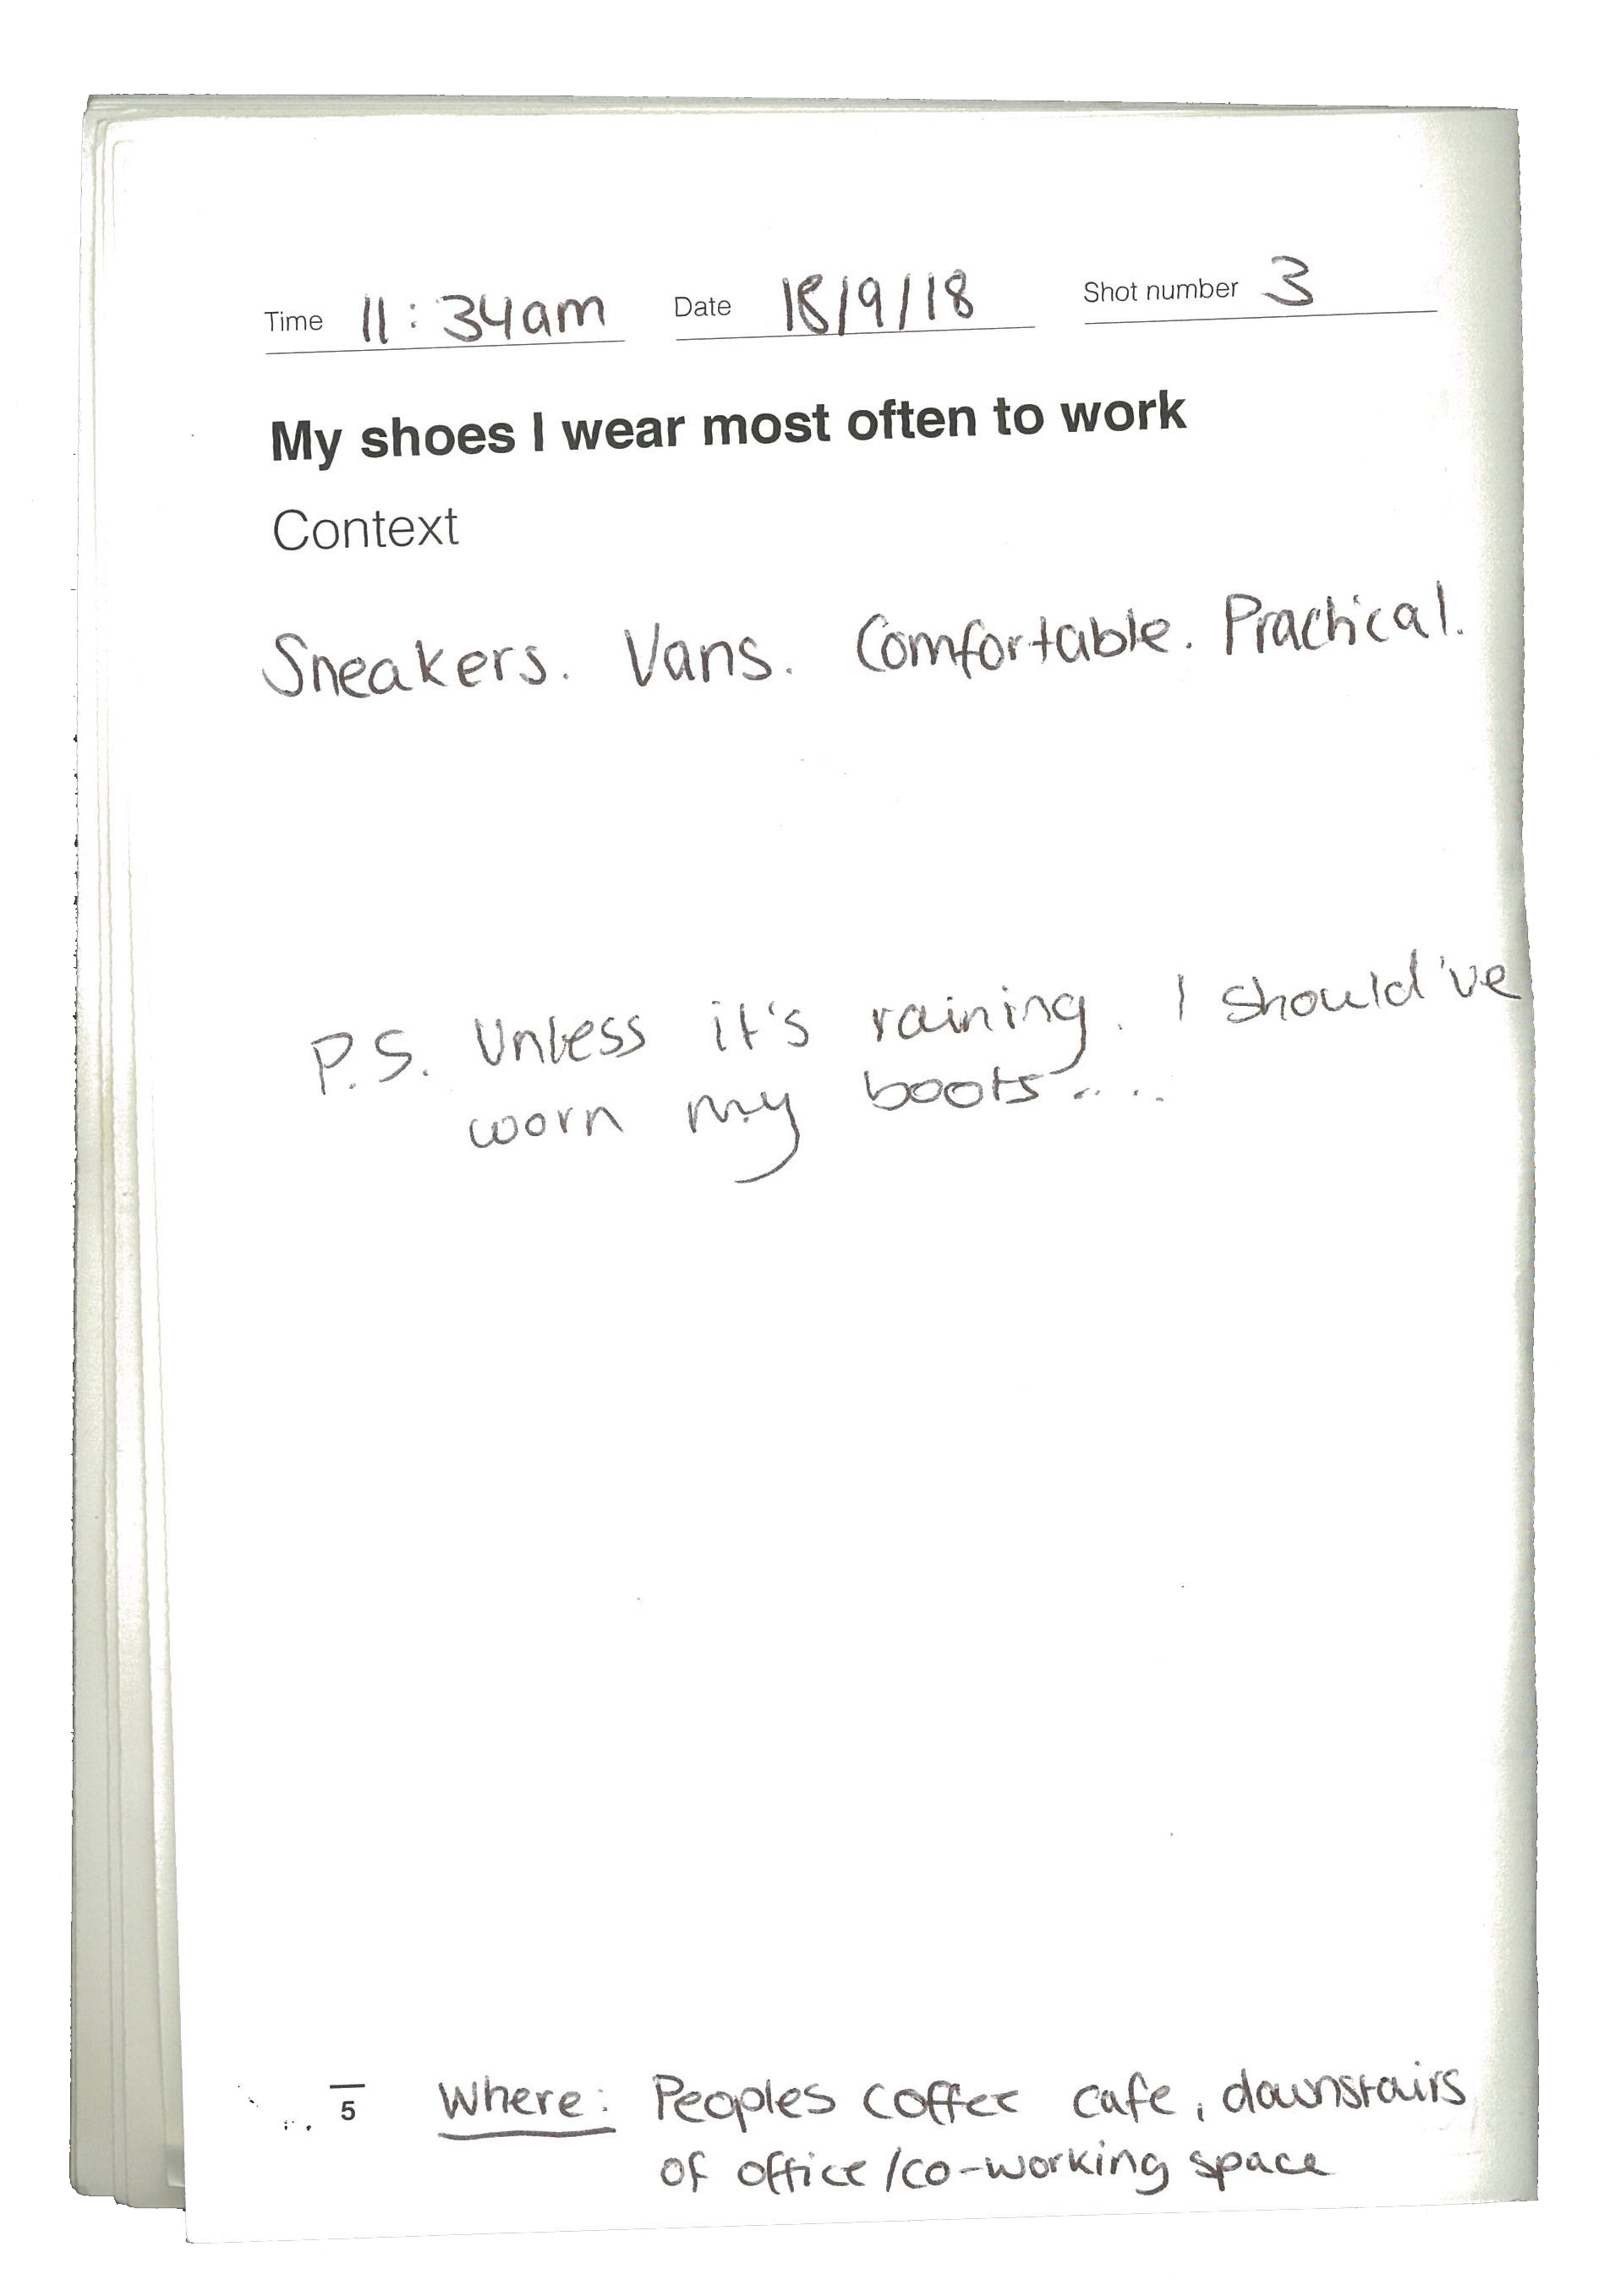 Time 11:34am Date 18/9/18 Shot number 3
My shoes I wear most often to work
Context
Sneakers. Vans. Comfortable. Practical.
P.S. Unless it's raining. I should've
worn my boots.....
5 Where: Peoples coffee cafe, downstairs
of office/co-working space